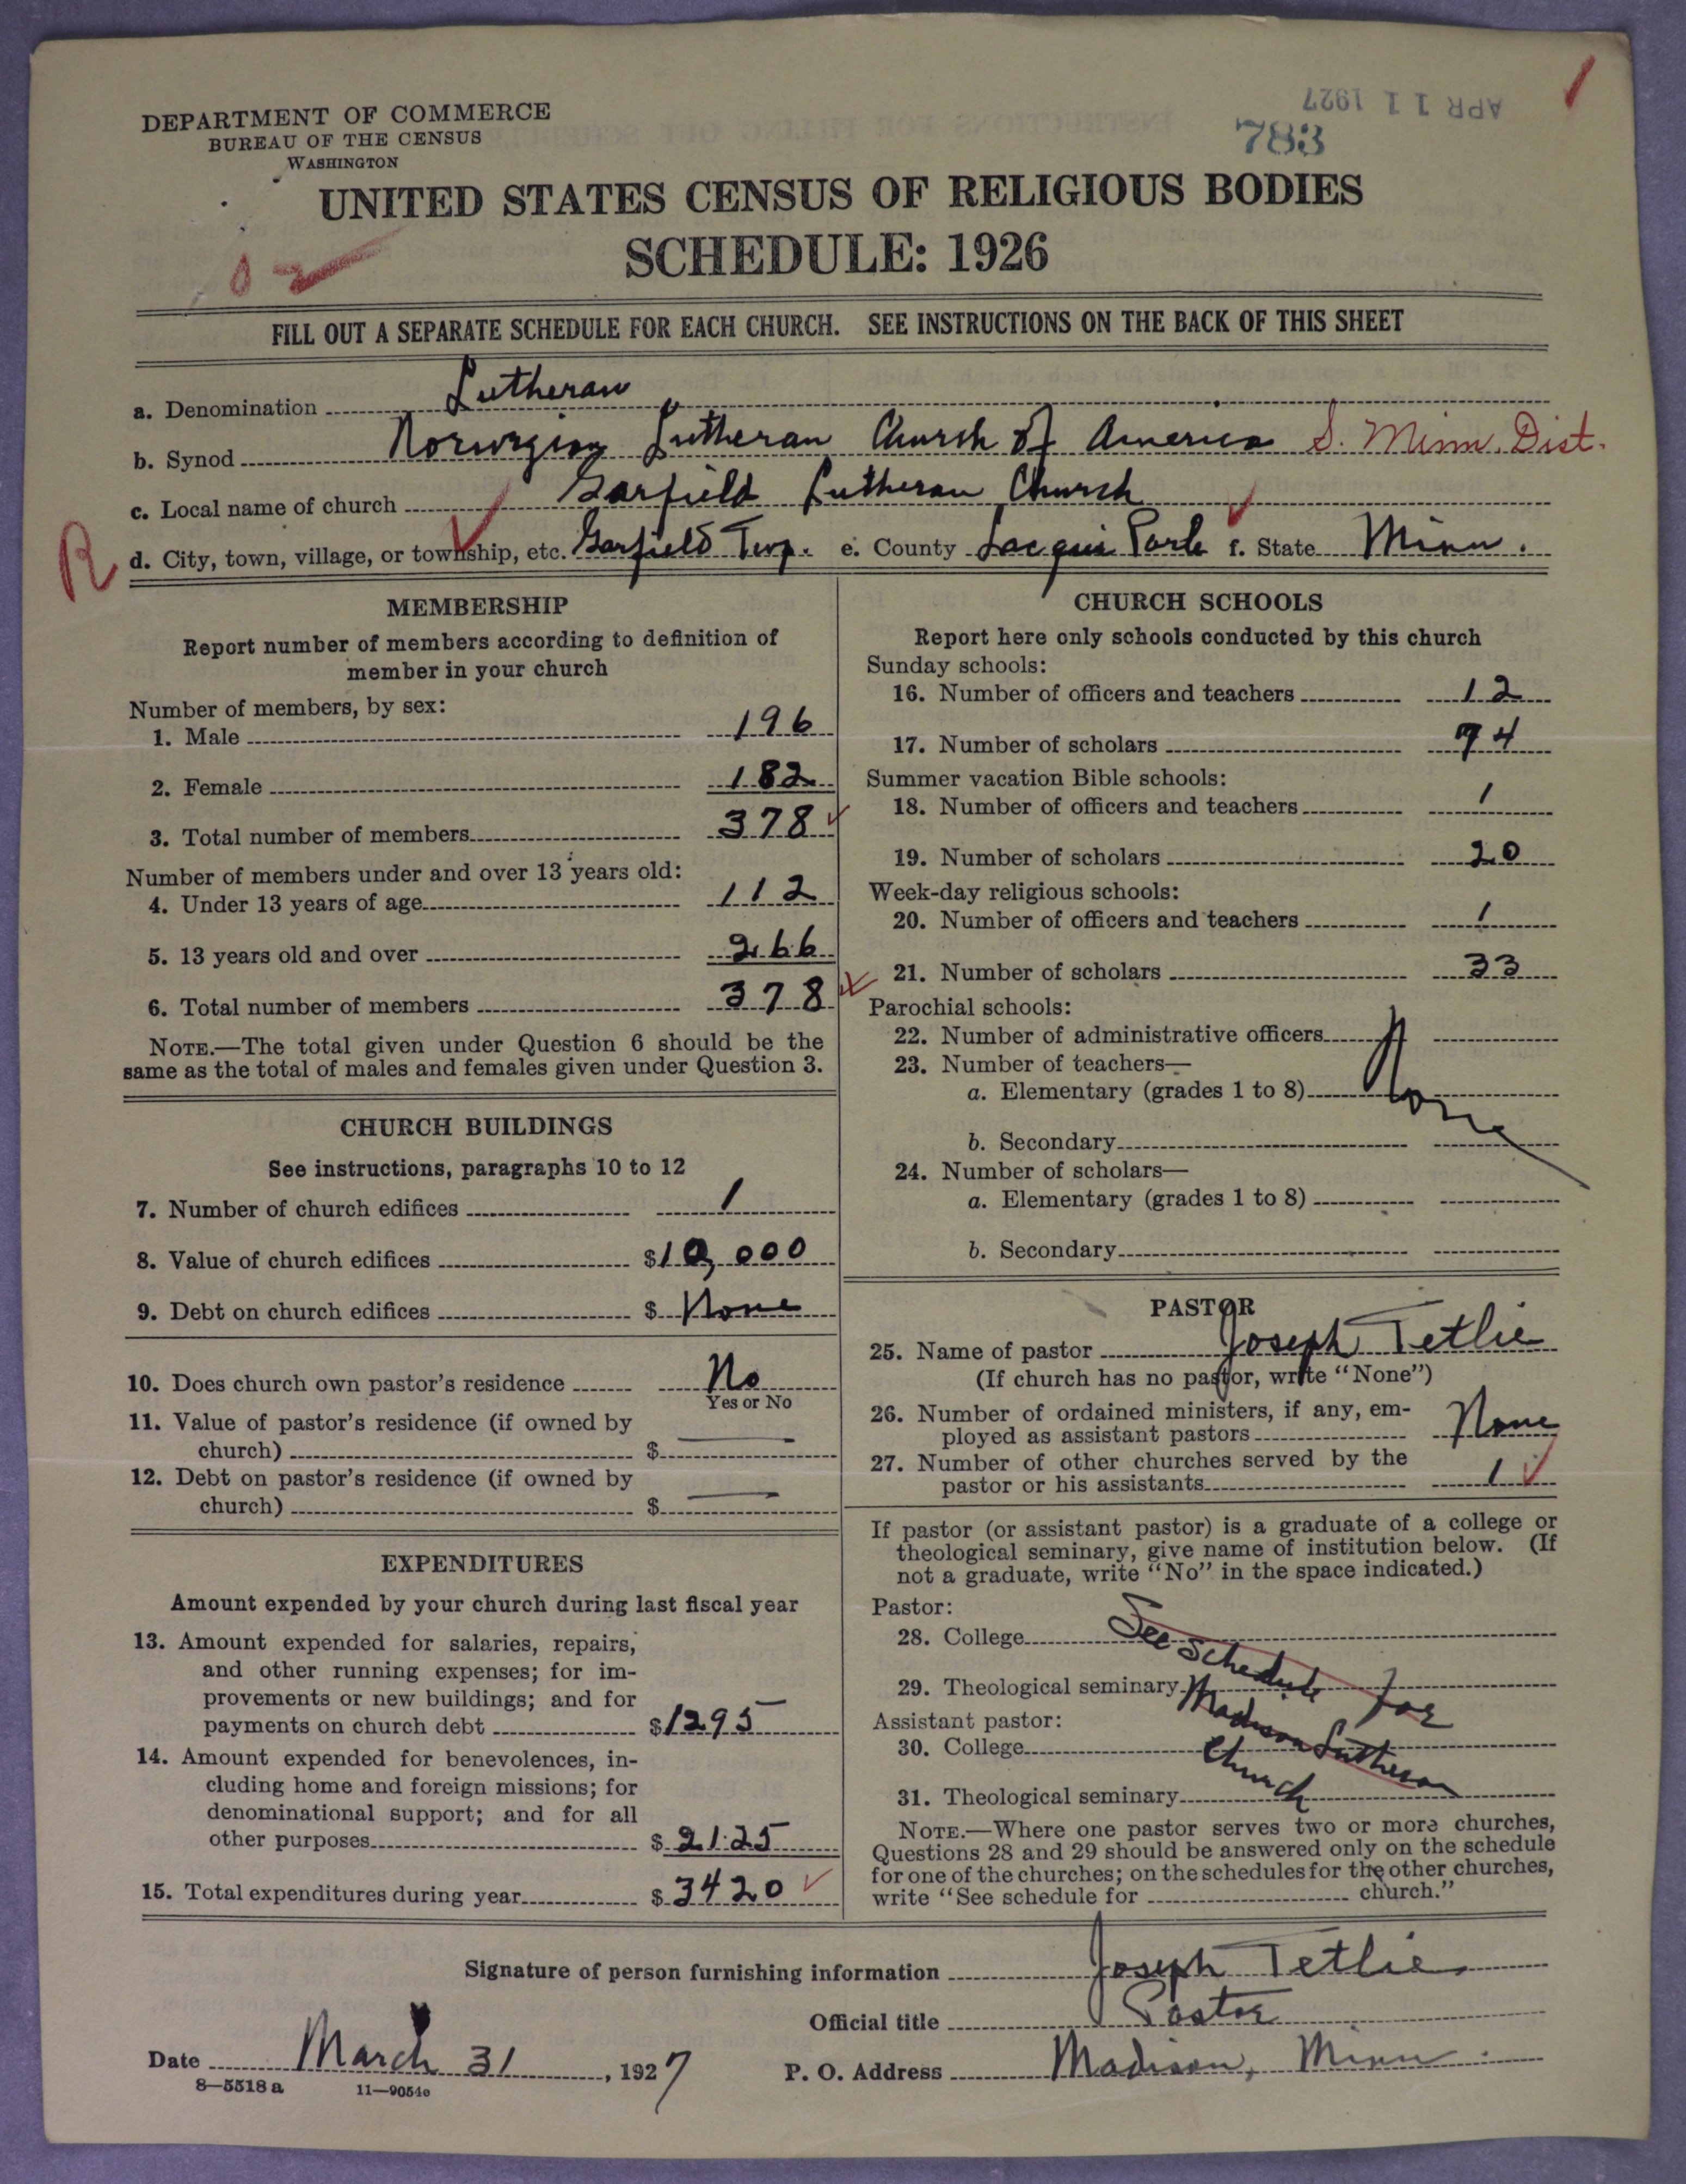 DEPARTMENT OF COMMERCE
BUREAU OF THE CENSUS
WASHINGTON
APR 11 1927
783
UNITED STATES CENSUS OF RELIGIOUS BODIES
SCHEDULE: 1926
02
FILL OUT A SEPARATE SCHEDULE FOR EACH CHURCH. SEE INSTRUCTIONS ON THE BACK OF THIS SHEET
a. Denomination Lutheran
b. Synod Norwegian Lutheran Church of America S. Minn. Dist.
c. Local name of church Garfield Lutheran Church
R d. City, town, village, or township, etc. Garfield Twp. e. County Lac qui Parle f. State Minn.
MEMBERSHIP
Report number of members according to definition of
member in your church
Number of members, by sex:
1. Male 196
2. Female 182
3. Total number of members 378
Number of members under and over 13 years old:
4. Under 13 years of age 112
5. 13 years old and over 266
6. Total number of members 378
NOTE.—The total given under Question 6 should be the
same as the total of males and females given under Question 3.
CHURCH BUILDINGS
See instructions, paragraphs 10 to 12
7. Number of church edifices 1
8. Value of church edifices $10,000
9. Debt on church edifices $ None
10. Does church own pastor's residence No
Yes or No
11. Value of pastor's residence (if owned by
church) $ —
12. Debt on pastor's residence (if owned by
church) $ —
EXPENDITURES
Amount expended by your church during last fiscal year
13. Amount expended for salaries, repairs,
and other running expenses; for im-
provements or new buildings; and for
payments on church debt $1295
14. Amount expended for benevolences, in-
cluding home and foreign missions; for
denominational support; and for all
other purposes $2125
15. Total expenditures during year $3420
CHURCH SCHOOLS
Report here only schools conducted by this church
Sunday schools:
16. Number of officers and teachers 12
17. Number of scholars 74
Summer vacation Bible schools:
18. Number of officers and teachers 1
19. Number of scholars 20
Week-day religious schools:
20. Number of officers and teachers 1
21. Number of scholars 33
Parochial schools:
22. Number of administrative officers
23. Number of teachers—
a. Elementary (grades 1 to 8) None
b. Secondary
24. Number of scholars—
a. Elementary (grades 1 to 8)
b. Secondary
PASTOR
25. Name of pastor Joseph Tetlie
(If church has no pastor, write "None")
26. Number of ordained ministers, if any, em-
ployed as assistant pastors None
27. Number of other churches served by the
pastor or his assistants 1
If pastor (or assistant pastor) is a graduate of a college or
theological seminary, give name of institution below. (If
not a graduate, write "No" in the space indicated.)
Pastor:
28. College
See schedule for
29. Theological seminary
Madison Lutheran
Assistant pastor:
30. College
Church
31. Theological seminary
NOTE.—Where one pastor serves two or more churches,
Questions 28 and 29 should be answered only on the schedule
for one of the churches; on the schedules for the other churches,
write "See schedule for church."
Signature of person furnishing information Joseph Tetlie
Official title Pastor
Date March 31, 1927 P. O. Address Madison, Minn.
8—5518 a 11—9054c